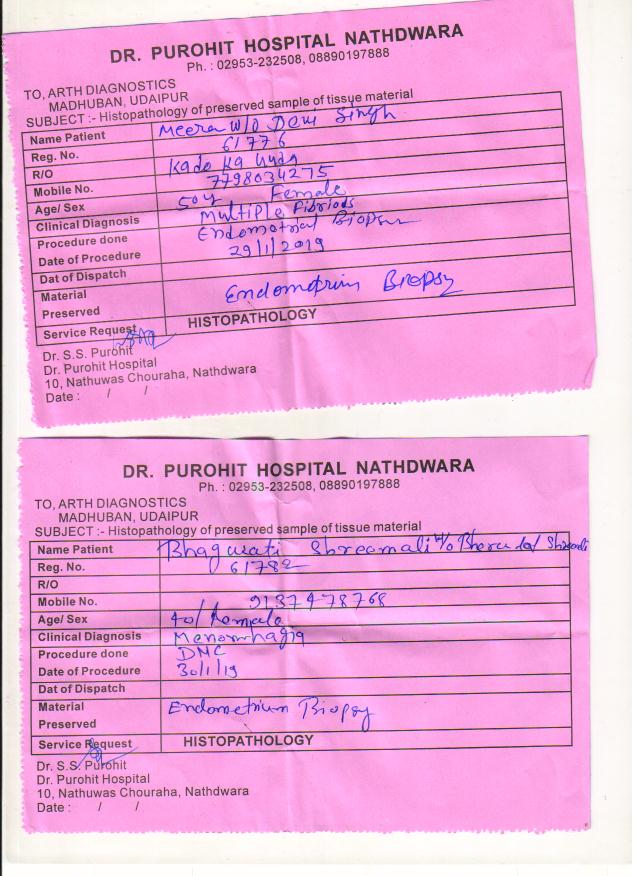 DR. PUROHIT HOSPITAL NATHDWARA
Ph. : 02953-232508, 08890197888
TO, ARTH DIAGNOSTICS
MADHUBAN, UDAIPUR
SUBJECT :- Histopathology of preserved sample of tissue material
Name Patient Meera W/O Devi Singh
Reg. No. 61776
R/O
Mobile No. 7798034275
Age/ Sex 50y Female
Clinical Diagnosis Multiple Fibriods
Procedure done Endometrial Biopsy
Date of Procedure 29/1/2019
Dat of Dispatch
Material Endometrium Biopsy
Preserved
Service Request HISTOPATHOLOGY
Dr. S.S. Purohit
Dr. Purohit Hospital
10, Nathuwas Chouraha, Nathdwara
Date : / /
DR. PUROHIT HOSPITAL NATHDWARA
Ph. : 02953-232508, 08890197888
TO, ARTH DIAGNOSTICS
MADHUBAN, UDAIPUR
SUBJECT :- Histopathology of preserved sample of tissue material
Name Patient Bhagwati Shreemali W/o Bheru lal
Reg. No. 61782
R/O
Mobile No. 9137478768
Age/ Sex 40/Female
Clinical Diagnosis Menorrhagia
Procedure done DNC
Date of Procedure 30/1/19
Dat of Dispatch
Material Endometrium Biopsy
Preserved
Service Request HISTOPATHOLOGY
Dr. S.S. Purohit
Dr. Purohit Hospital
10, Nathuwas Chouraha, Nathdwara
Date : / /